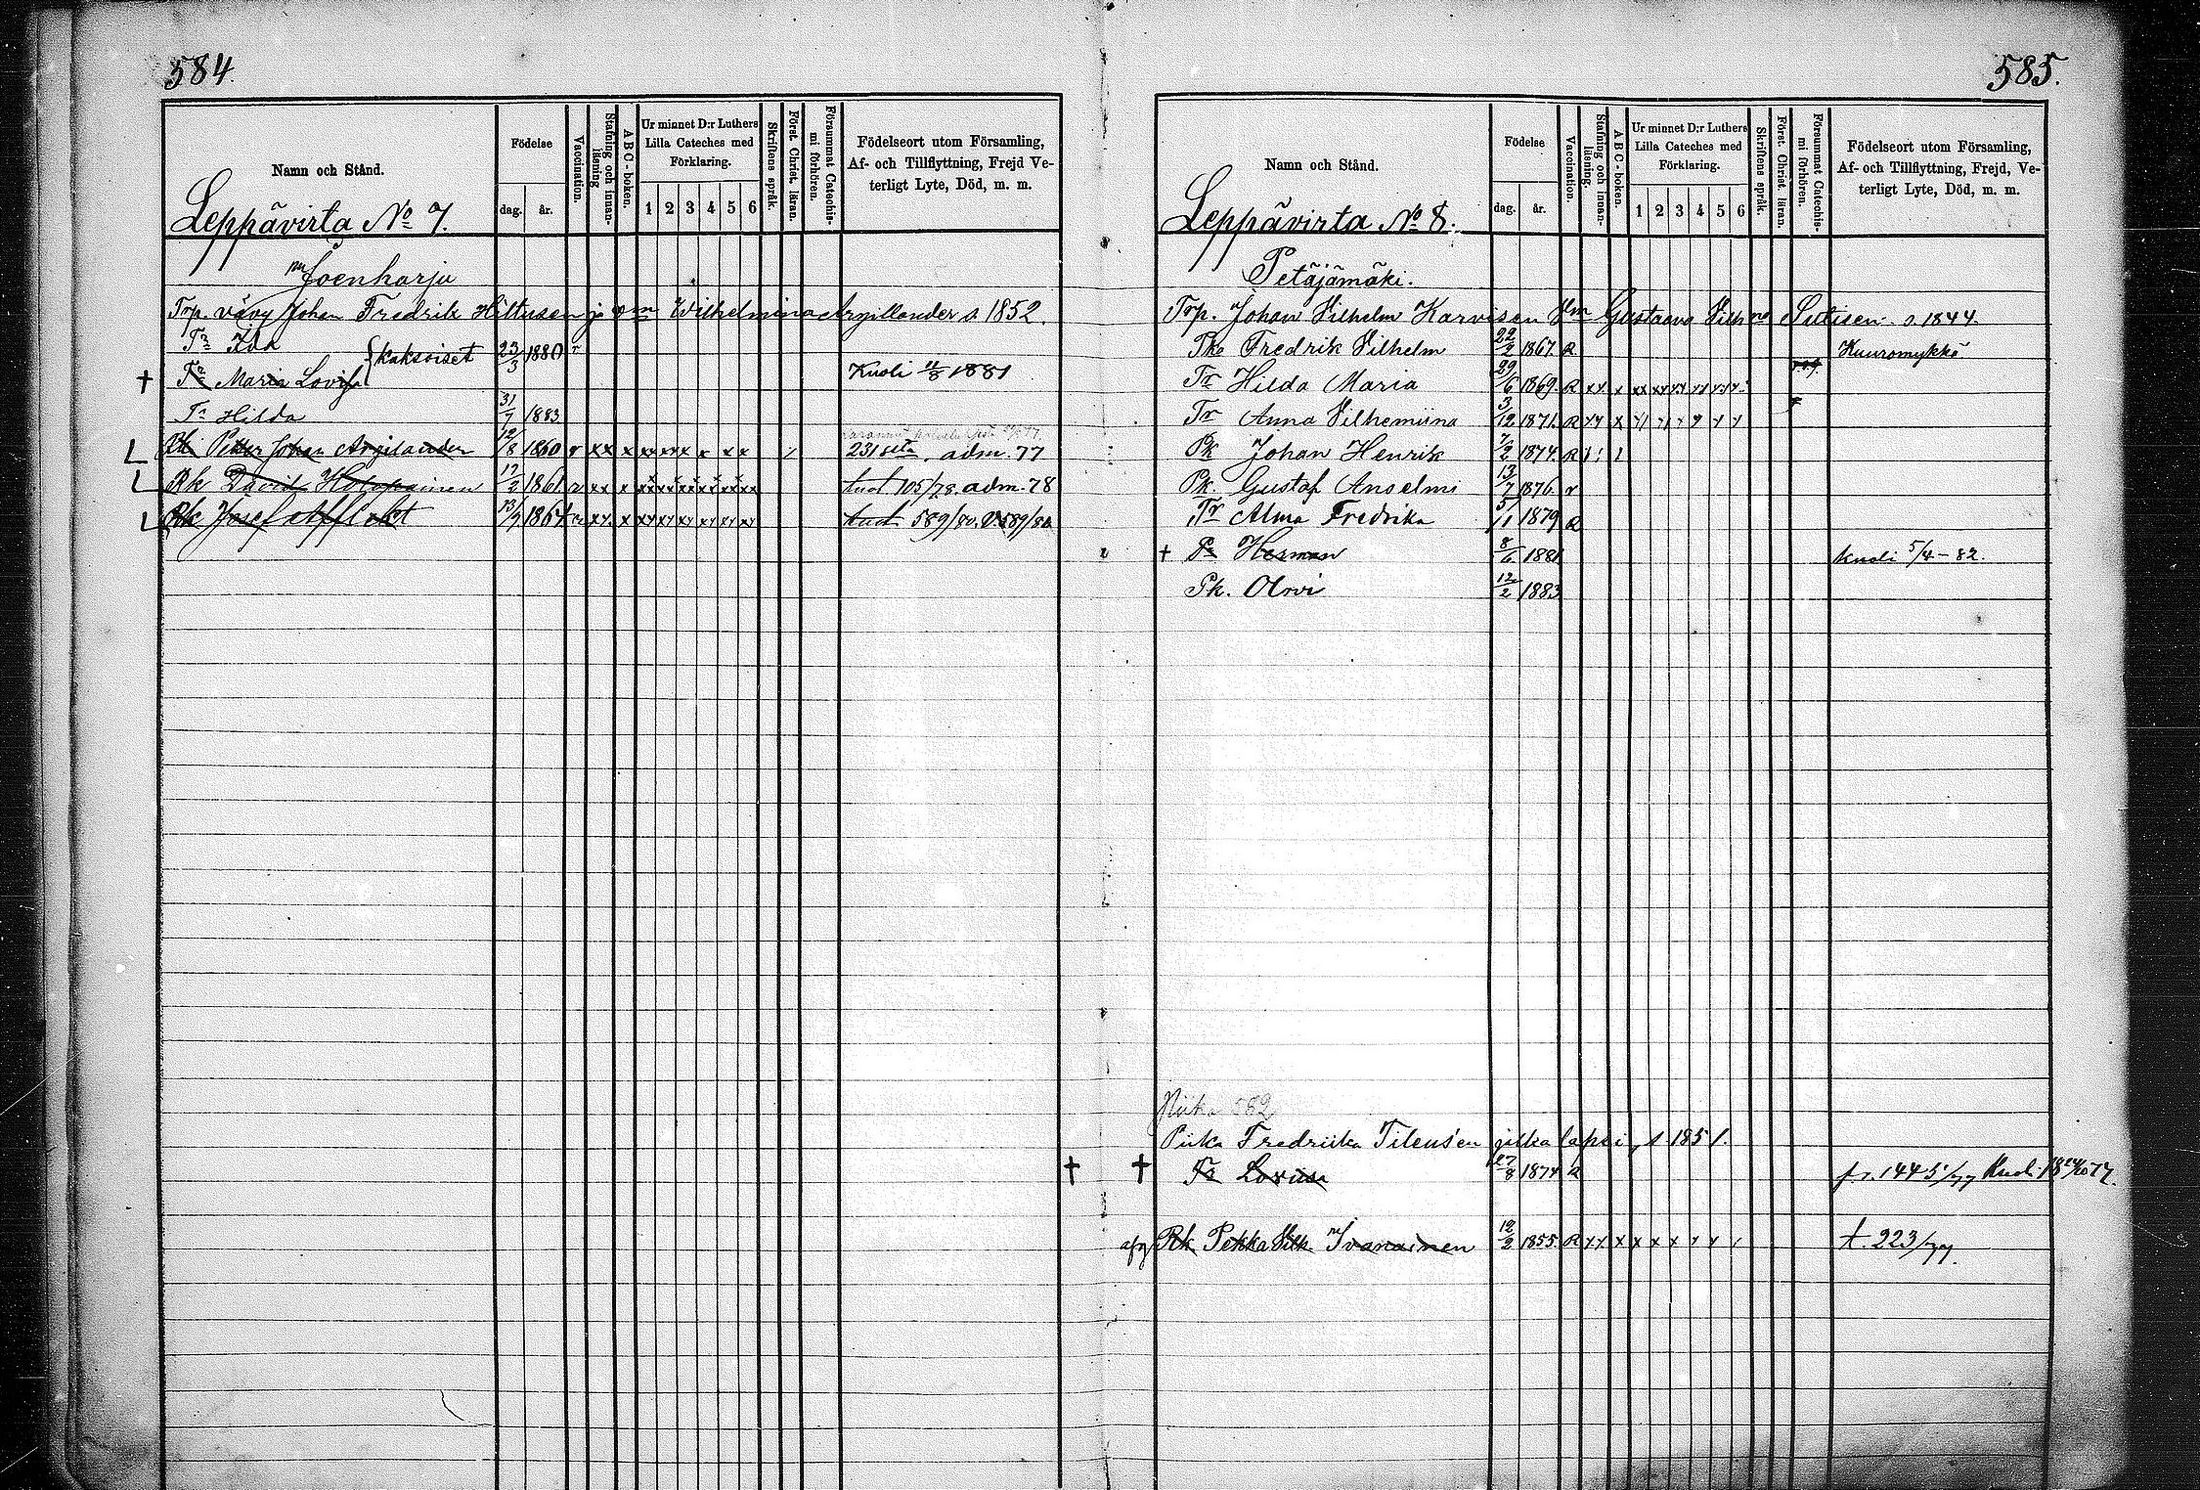 584.
Namn och Stånd.
Födelse
dag.
år.
Vaccination.
Stafning och innan-läsning
ABC-boken.
Ur minnet D:r Luthers
Lilla Cateches med
Förklaring.
1 2 3 4 5 6
Skriftens språk.
Först. Christ. läran.
Försummat Catechis-mi förhören.
Födelseort utom Församling,
Af- och Tillflyttning, Frejd Ve-
terligt Lyte, Död, m. m.
Leppävirta No 7.
Joenharju
Trp. vävy Johan Fredrik Hiltusen ja vm Wilhelmina Argillander s. 1852.
Tr Ida 23/3 1880 r
{kaksoiset
† Tr Maria Lovisa Kuoli 11/8 1881
Tr Hilda 31/7 1883
L Petter Johan Argilander 12/8 1860 r xx x xx xx x x x 231 adm. 77
L Rk David Holopainen 17/2 1861 r xx x 105/78. adm. 78
L Rk Josef Afflekt 13/9 1864 r xx x xx xx xx xx xx xx 589/80.
585.
Namn och Stånd.
Födelse
dag.
år.
Vaccination.
Stafning och innan-läsning.
ABC-boken.
Ur minnet D:r Luthers
Lilla Cateches med
Förklaring.
1 2 3 4 5 6
Skriftens språk.
Först. Christ. läran.
Försummat Catechis-mi förhören.
Födelseort utom Församling,
Af- och Tillflyttning, Frejd, Ve-
terligt Lyte, Död, m. m.
Leppävirta No 8.
Petäjämäki.
Trp. Johan Vilhelm Karvisen Vm Gustaava Vilhna Sutisen s. 1844.
Pk Fredrik Vilhelm 22/2 1867. R Kuuromykkä
Tr Hilda Maria 29/6 1869. R xx x xx xx xx xx xx xx
Tr Anna Vilhemiina 3/12 1871. R xx x
Pk Johan Henrik 7/2 1874. R
Pk. Gustaf Anselmi 13/7 1876. r
Tr Alma Fredrika 5/11 1879 R
† Pk Herman 8/6 1881 kuoli 5/4-82.
Pk. Arvi 12/2 1883
Piika 582
Piika Fredriika Tileus'en jalka lapsi, s. 1851.
† † Tr Loviisa 27/8 1874 R
Rk Pekka Vilh. Ivanainen 12/2 1855. R xx x x x x x x t. 223/77.